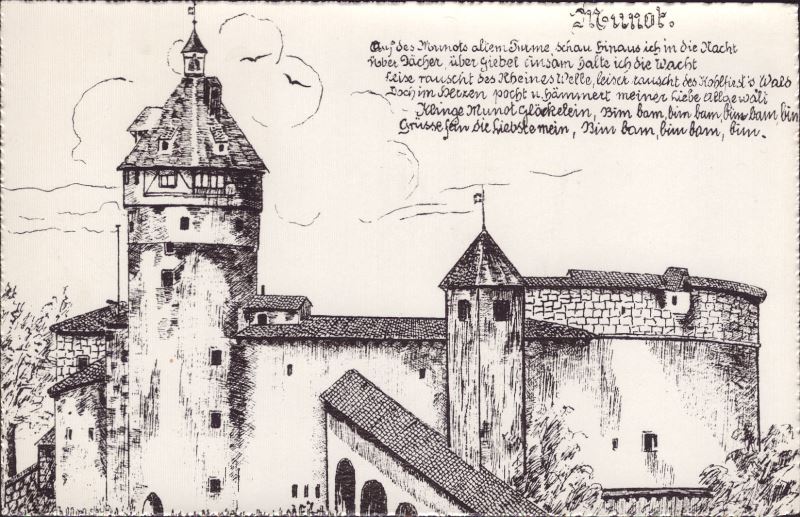 Munot.
Auf des Munots altem Turme schau hinaus ich in die Nacht
hoher Dächer, über Giebel einsam halte ich die Wacht
Leise rauscht des Rheines Welle, leiser rauscht des Kohlfirst's Wald
Doch im Herzen pocht u. hämmert meiner Liebe Allgewalt
Klinge Munot Glöckelein, Bim bam, bim bam, bim bam, bim
Grüsse fein die Liebste mein, Bim bam, bim bam, bim.